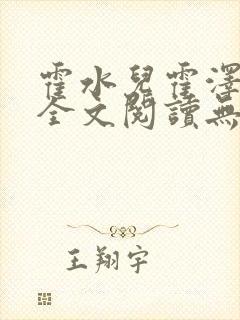 霍水兒霍澤
全文閱讀無
王翔宇